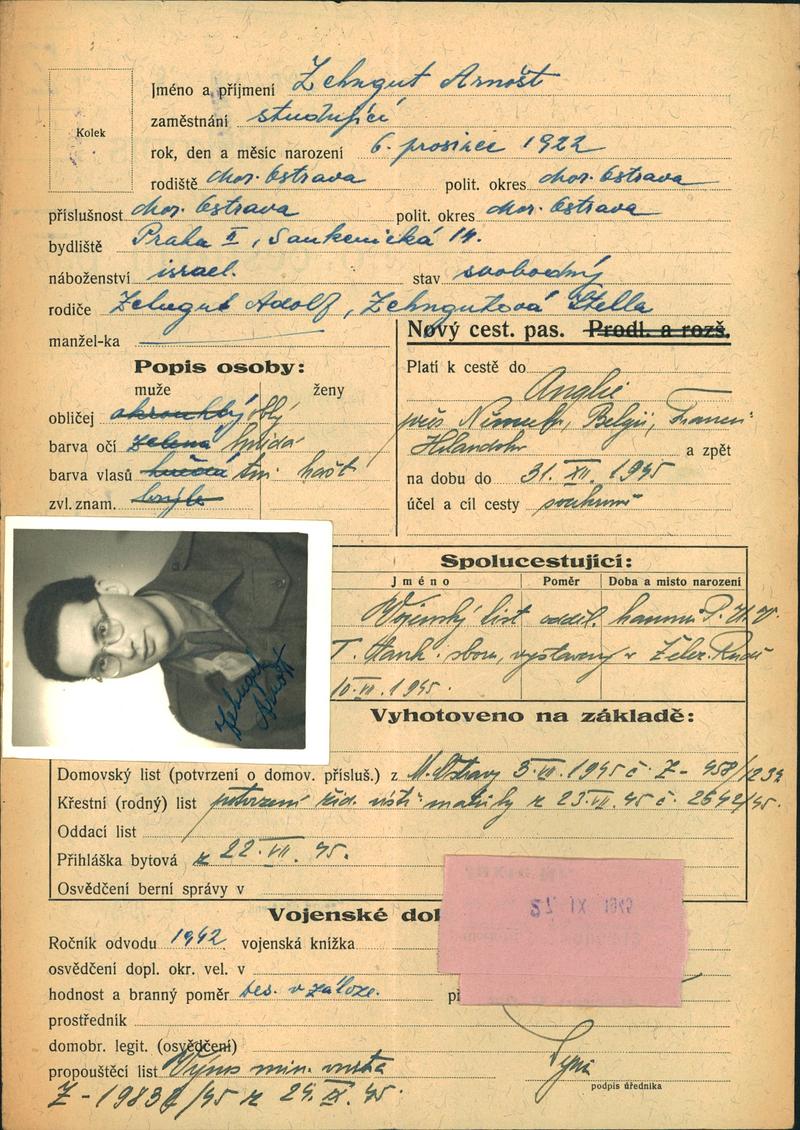 Kolek
Jméno a příjmení Zehngut Arnošt
zaměstnání studující
rok, den a měsíc narození 6. prosince 1922
rodiště Mor. Ostrava polit. okres Mor. Ostrava
příslušnost Mor. Ostrava polit. okres Mor. Ostrava
bydliště Praha II, Soukenická 14.
náboženství israel. stav svobodný
rodiče Zehngut Adolf, Zehngutová Stella
manžel-ka
Nový cest. pas. Prodl. a rozš.
Popis osoby:
muže ženy
obličej okrouhlý oblý
barva očí zelená hnědá
barva vlasů tm. kašt
zvl. znam. brýle
Platí k cestě do
Anglie
přes Německo, Belgii, Francii
Holandsko a zpět
na dobu do 31. XII. 1945
účel a cíl cesty soukromě
Spolucestující:
Jméno Poměr Doba a místo narození
Vojenský list oddíl.
vystavený v Želez. Rudě
10. 1945.
Zehngut
Arnošt
Vyhotoveno na základě:
Domovský list (potvrzení o domov. přísluš.) z M. Ostravy 3. VII. 1945 č. Z - 958/1232
Křestní (rodný) list potvrzení žid. matriky z 23. VII. 45 č. 2642/45.
Oddací list
Přihláška bytová z 22. VII. 45.
Osvědčení berní správy v
Vojenské dok
Ročník odvodu 1942 vojenská knížka
osvědčení dopl. okr. vel. v
hodnost a branný poměr des. v záloze. př
prostředník
domobr. legit. (osvědčení)
propouštěcí list Výnos min. vnitra
podpis úředníka